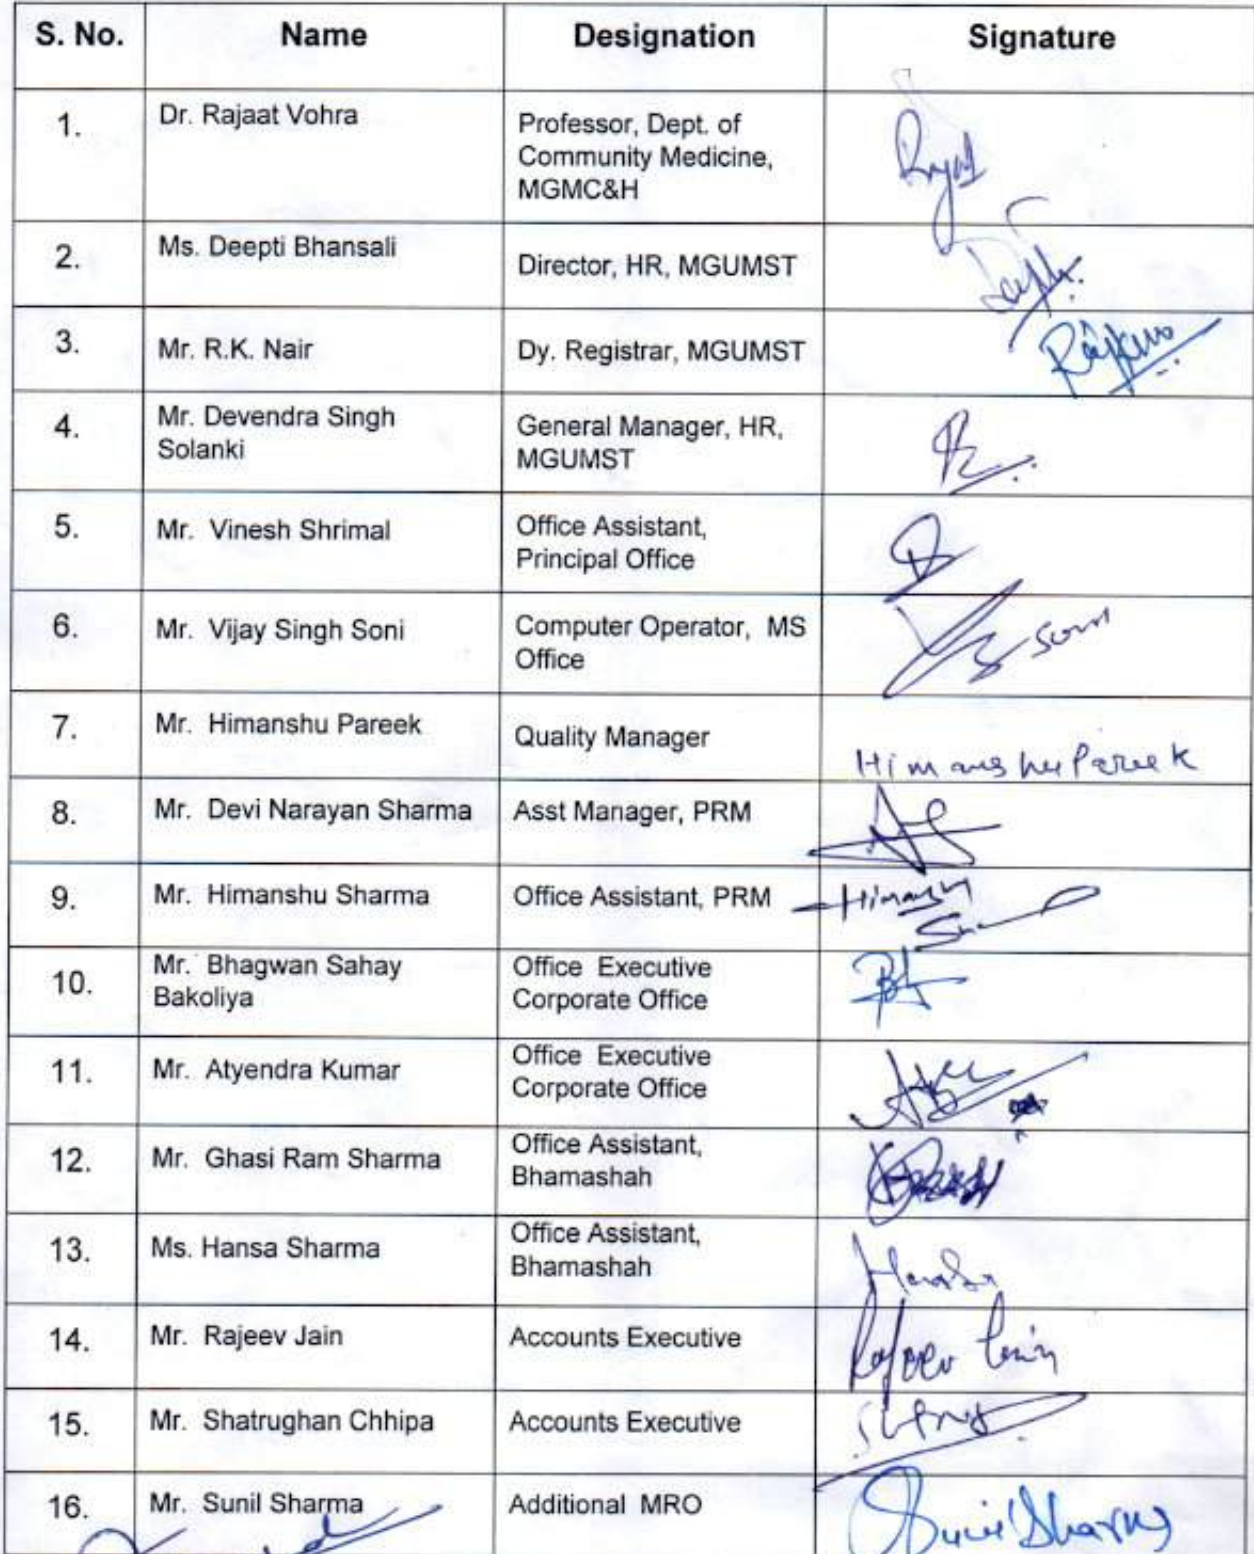 S. No. Name Designation Signature
1. Dr. Rajaat Vohra Professor, Dept. of
Community Medicine,
MGMC&H
2. Ms. Deepti Bhansali Director, HR, MGUMST
3. Mr. R.K. Nair Dy. Registrar, MGUMST
4. Mr. Devendra Singh General Manager, HR,
Solanki MGUMST
5. Mr. Vinesh Shrimal Office Assistant,
Principal Office
6. Mr. Vijay Singh Soni Computer Operator, MS
Office Soni
7. Mr. Himanshu Pareek Quality Manager
Himanshu Pareek
8. Mr. Devi Narayan Sharma Asst Manager, PRM
9. Mr. Himanshu Sharma Office Assistant, PRM Himanshu
10. Mr. Bhagwan Sahay Office Executive
Bakoliya Corporate Office
11. Mr. Atyendra Kumar Office Executive
Corporate Office
12. Mr. Ghasi Ram Sharma Office Assistant,
Bhamashah
13. Ms. Hansa Sharma Office Assistant,
Bhamashah Hansa
14. Mr. Rajeev Jain Accounts Executive Rajeev Jain
15. Mr. Shatrughan Chhipa Accounts Executive
16. Mr. Sunil Sharma Additional MRO Sunil Sharma